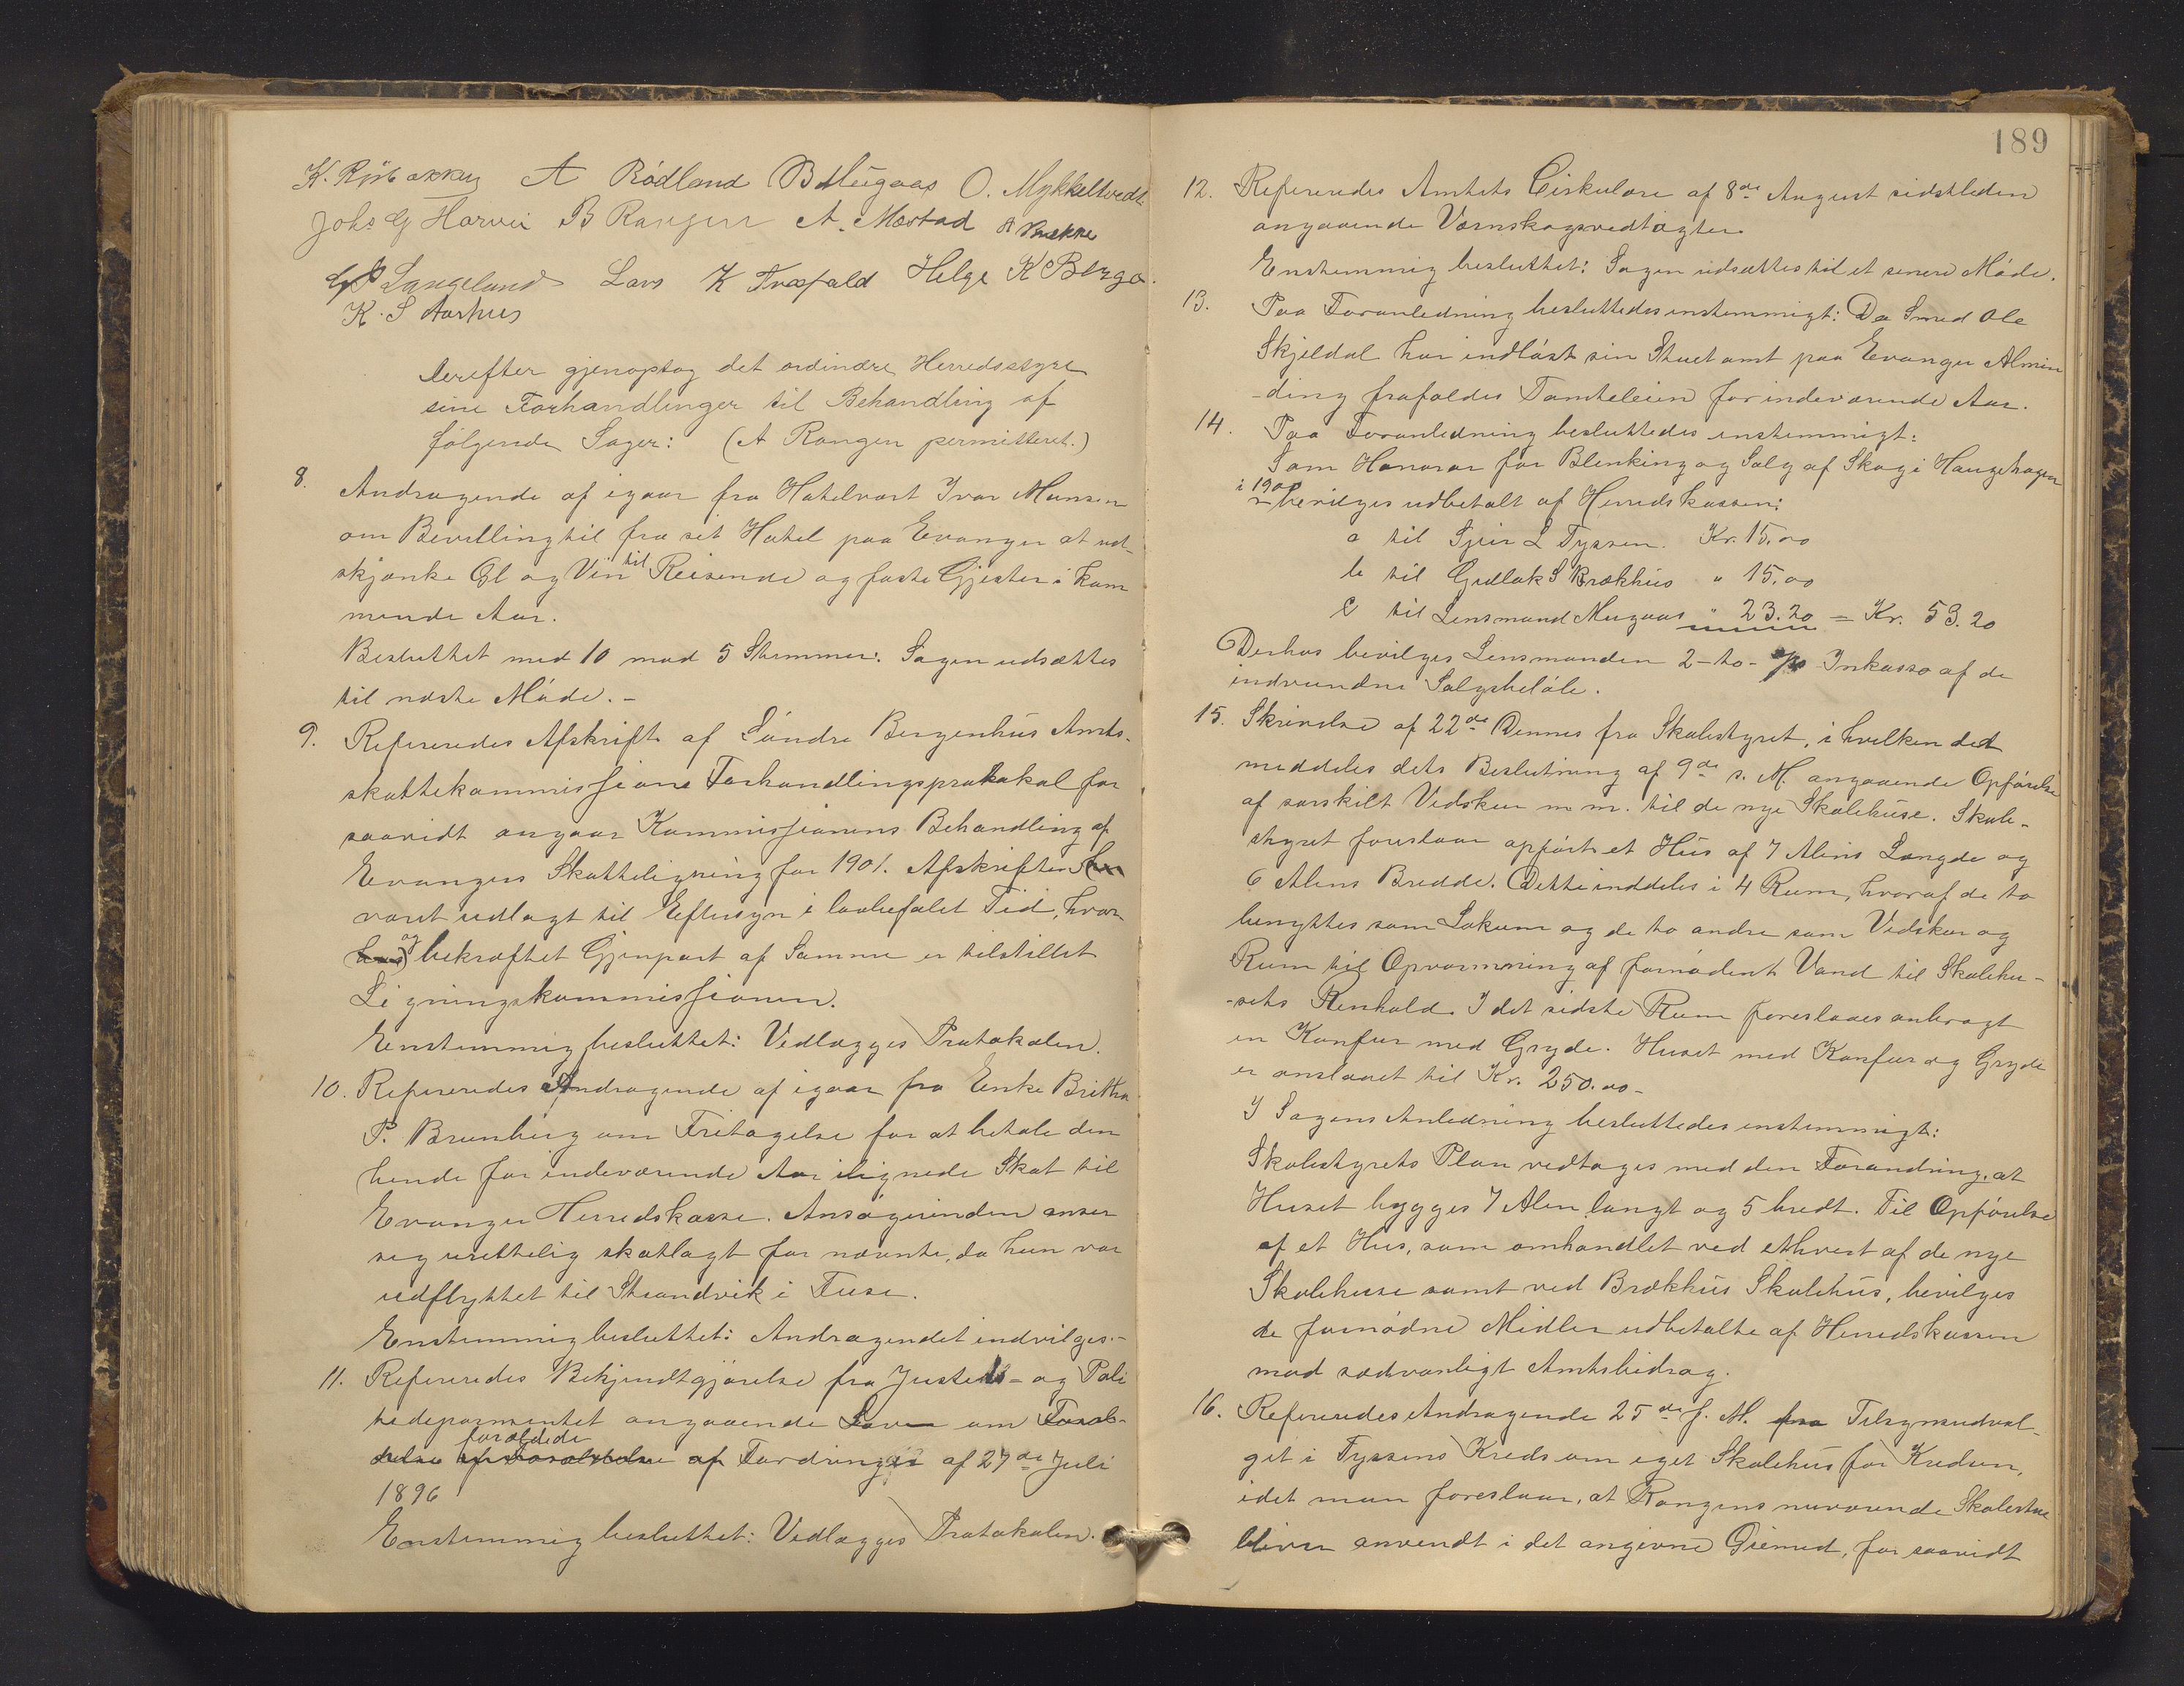 K. A Rödland B Mügaas O. Mykkeltvedt
Johs G Horvei B Rangen A. Mæstad A Brekke
Langeland Lars K Træfald Helge K Berge.
K. S Aarhus
Derefter gjenoptog det ordinære Herredsstyre
sine Forhandlinger til Behandling af
følgende Sager: (A Rangen permitteret.)
8. Andragende af igaar fra Hotelvært Ivar Monsen
om Bevilling til fra sit Hotel paa Evanger at ud-
skjænke Øl og Vin til Reisende og faste Gjester i kom
mende Aar.
Besluttet med 10 mod 5 Stemmer: Sagen udsættes
til næste Møde.-
9. Refereredes Afskrift af Søndre Bergenhus Amts-
skattekommissions Forhandlingsprotokol for
saavidt angaar Kommissionens Behandling af
Evangers Skatteligning for 1901. Afskriften har
været udlagt til Eftersyn i lovbefalet Tid, hvor
og bekræftet Gjenpart af Samme er tilstillet
Ligningskommissionen.
Enstemmig besluttet: Vedlægges Protokolen.
10. Refereredes Andragende af igaar fra Enke Britha
P. Brunborg om Fritagelse for at betale den
hende for indeværende Aar ilignede Skat til
Evanger Herredskasse. Ansøgerinden anser
seg urettelig skatlagt for nævnte, da hun var
udflyttet til Strandvik i Fuse.
Enstemmig besluttet: Andragendet indvilges.-
11. Refereredes Bekjendtgjørelse fra Justits- og Poli
tidepartmentet angaaende Loven om Foræl-
forældede
delse af Forældelse af Fordringer af 27de Juli
1896
Enstemmig besluttet: Vedlægges Protokolen.
189
12. Refereredes Amtets Cirkulære af 8de August sidstleden
angaaende Værnskogsvedtægter.
Enstemmig besluttet: Sagen udsættes til et senere Møde.
13. Paa Foranledning besluttedes enstemmigt: Da Smed Ole
Skjeldal har indløst sin Stuetomt paa Evanger Almin
-ding frafaldes Tomteleien for indeværende Aar.
14. Paa Foranledning besluttedes enstemmigt:
Som Honorar for Blenking og Salg af Skog i Haugehagen
i 190
bevilges udbetalt af Herredskassen:
a til Sjur L Fyssen. Kr. 15.00
b til Gullak S Brækhus " 15.00
c til Lensmand Mugaas " 23.20 = Kr. 53.20
Derhos bevilges Lensmanden 2-to- % Inkasso af de
indvundne Salgsbeløb.
15. Skrivelse af 22de Dennes fra Skolestyret, i hvilken det
meddeles dets Beslutning af 9de s. M. angaaende Opførelse
af særskilt Vedskur m m. til de nye Skolehuse. Skole-
styret foreslaar opført et Hus af 7 Alens Længde og
6 Alens Bredde. Dette inddeles i 4 Rum, hvoraf de to
benyttes som Lokum og de to andre som Vedskur og
Rum til Opvarmning af fornødent Vand til Skolehu-
-sets Renhold. I det sidste Rum foreslaaes anbragt
en Komfur med Gryde. Huset med Komfur og Gryde
er anslaaet til Kr. 250.00-
I Sagens Anledning besluttedes enstemmigt:
Skolestyrets Plan vedtages med den Forandring, at
Huset bygges 7 Alen langt og 5 bredt. Til Opførelse
af et Hus, som omhandlet ved ethvert af de nye
Skolehuse samt ved Brækhus Skolehus, bevilges
de fornødne Midler udbetalte af Herredskassen
mod sædvanligt Amtsbidrag.
16. Refereredes Andragende 25de f. M. fra Tilsynsudval-
get i Fyssens Kreds om eget Skolehus for Kredsen,
idet man foreslaar, at Rangens nuværende Skolestue
bliver anvendt i det angivne Øiemed, for saavidt